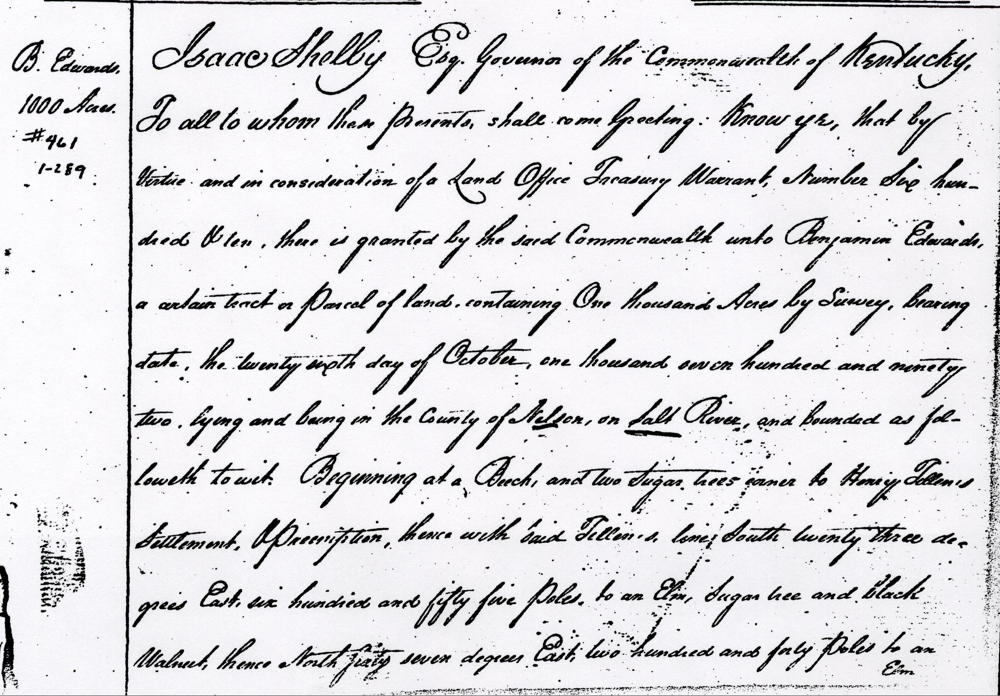 B. Edwards.
1000 Acres.
#461
1-289
Isaac Shelby Esq. Governor of the Commonwealth of Kentucky.
To all to whom these Presents, shall come Greeting: Know ye, that by
Virtue and in consideration of a Land Office Treasury Warrant, Number Six hun-
dred & ten, there is granted by the said Commonwealth unto Benjamin Edwards,
a certain tract or Parcel of land, containing One thousand Acres by Survey, bearing
date, the twenty sixth day of October, one thousand seven hundred and ninety
two, lying and being in the County of Nelson, on Salt River, and bounded as fol-
loweth to wit. Beginning at a Beech, and two Sugar trees corner to Henry
Settlement, & Preemption, thence with said line, South twenty three de-
grees East, six hundred and fifty five Poles, to an Elm, Sugar tree and black
Walnut, thence North seven degrees East, two hundred and forty Poles to an
Elm